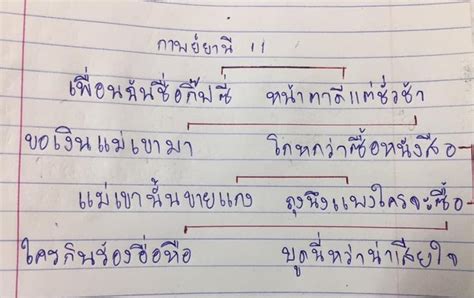 กาพย์ยานี 11
เพื่อนฉันชื่อกิ๊บซี่ หน้าตาดีแต่ชั่วช้า
ขอเงินแม่เขามา โกหกว่าซื้อหนังสือ
แม่เขานั้นขายแกง ถุงนึงแพงใครจะซื้อ
ใครกินร้องอื่อหือ บูดนี่หว่าน่าเสียใจ